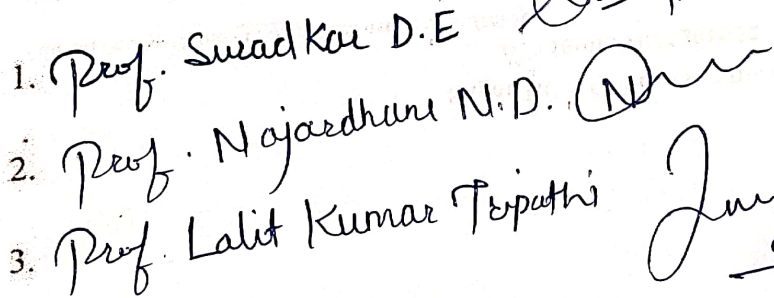 1. Prof. Suradkar D.E
2. Prof. Najardhane N.D.
3. Prof. Lalit Kumar Tripathi